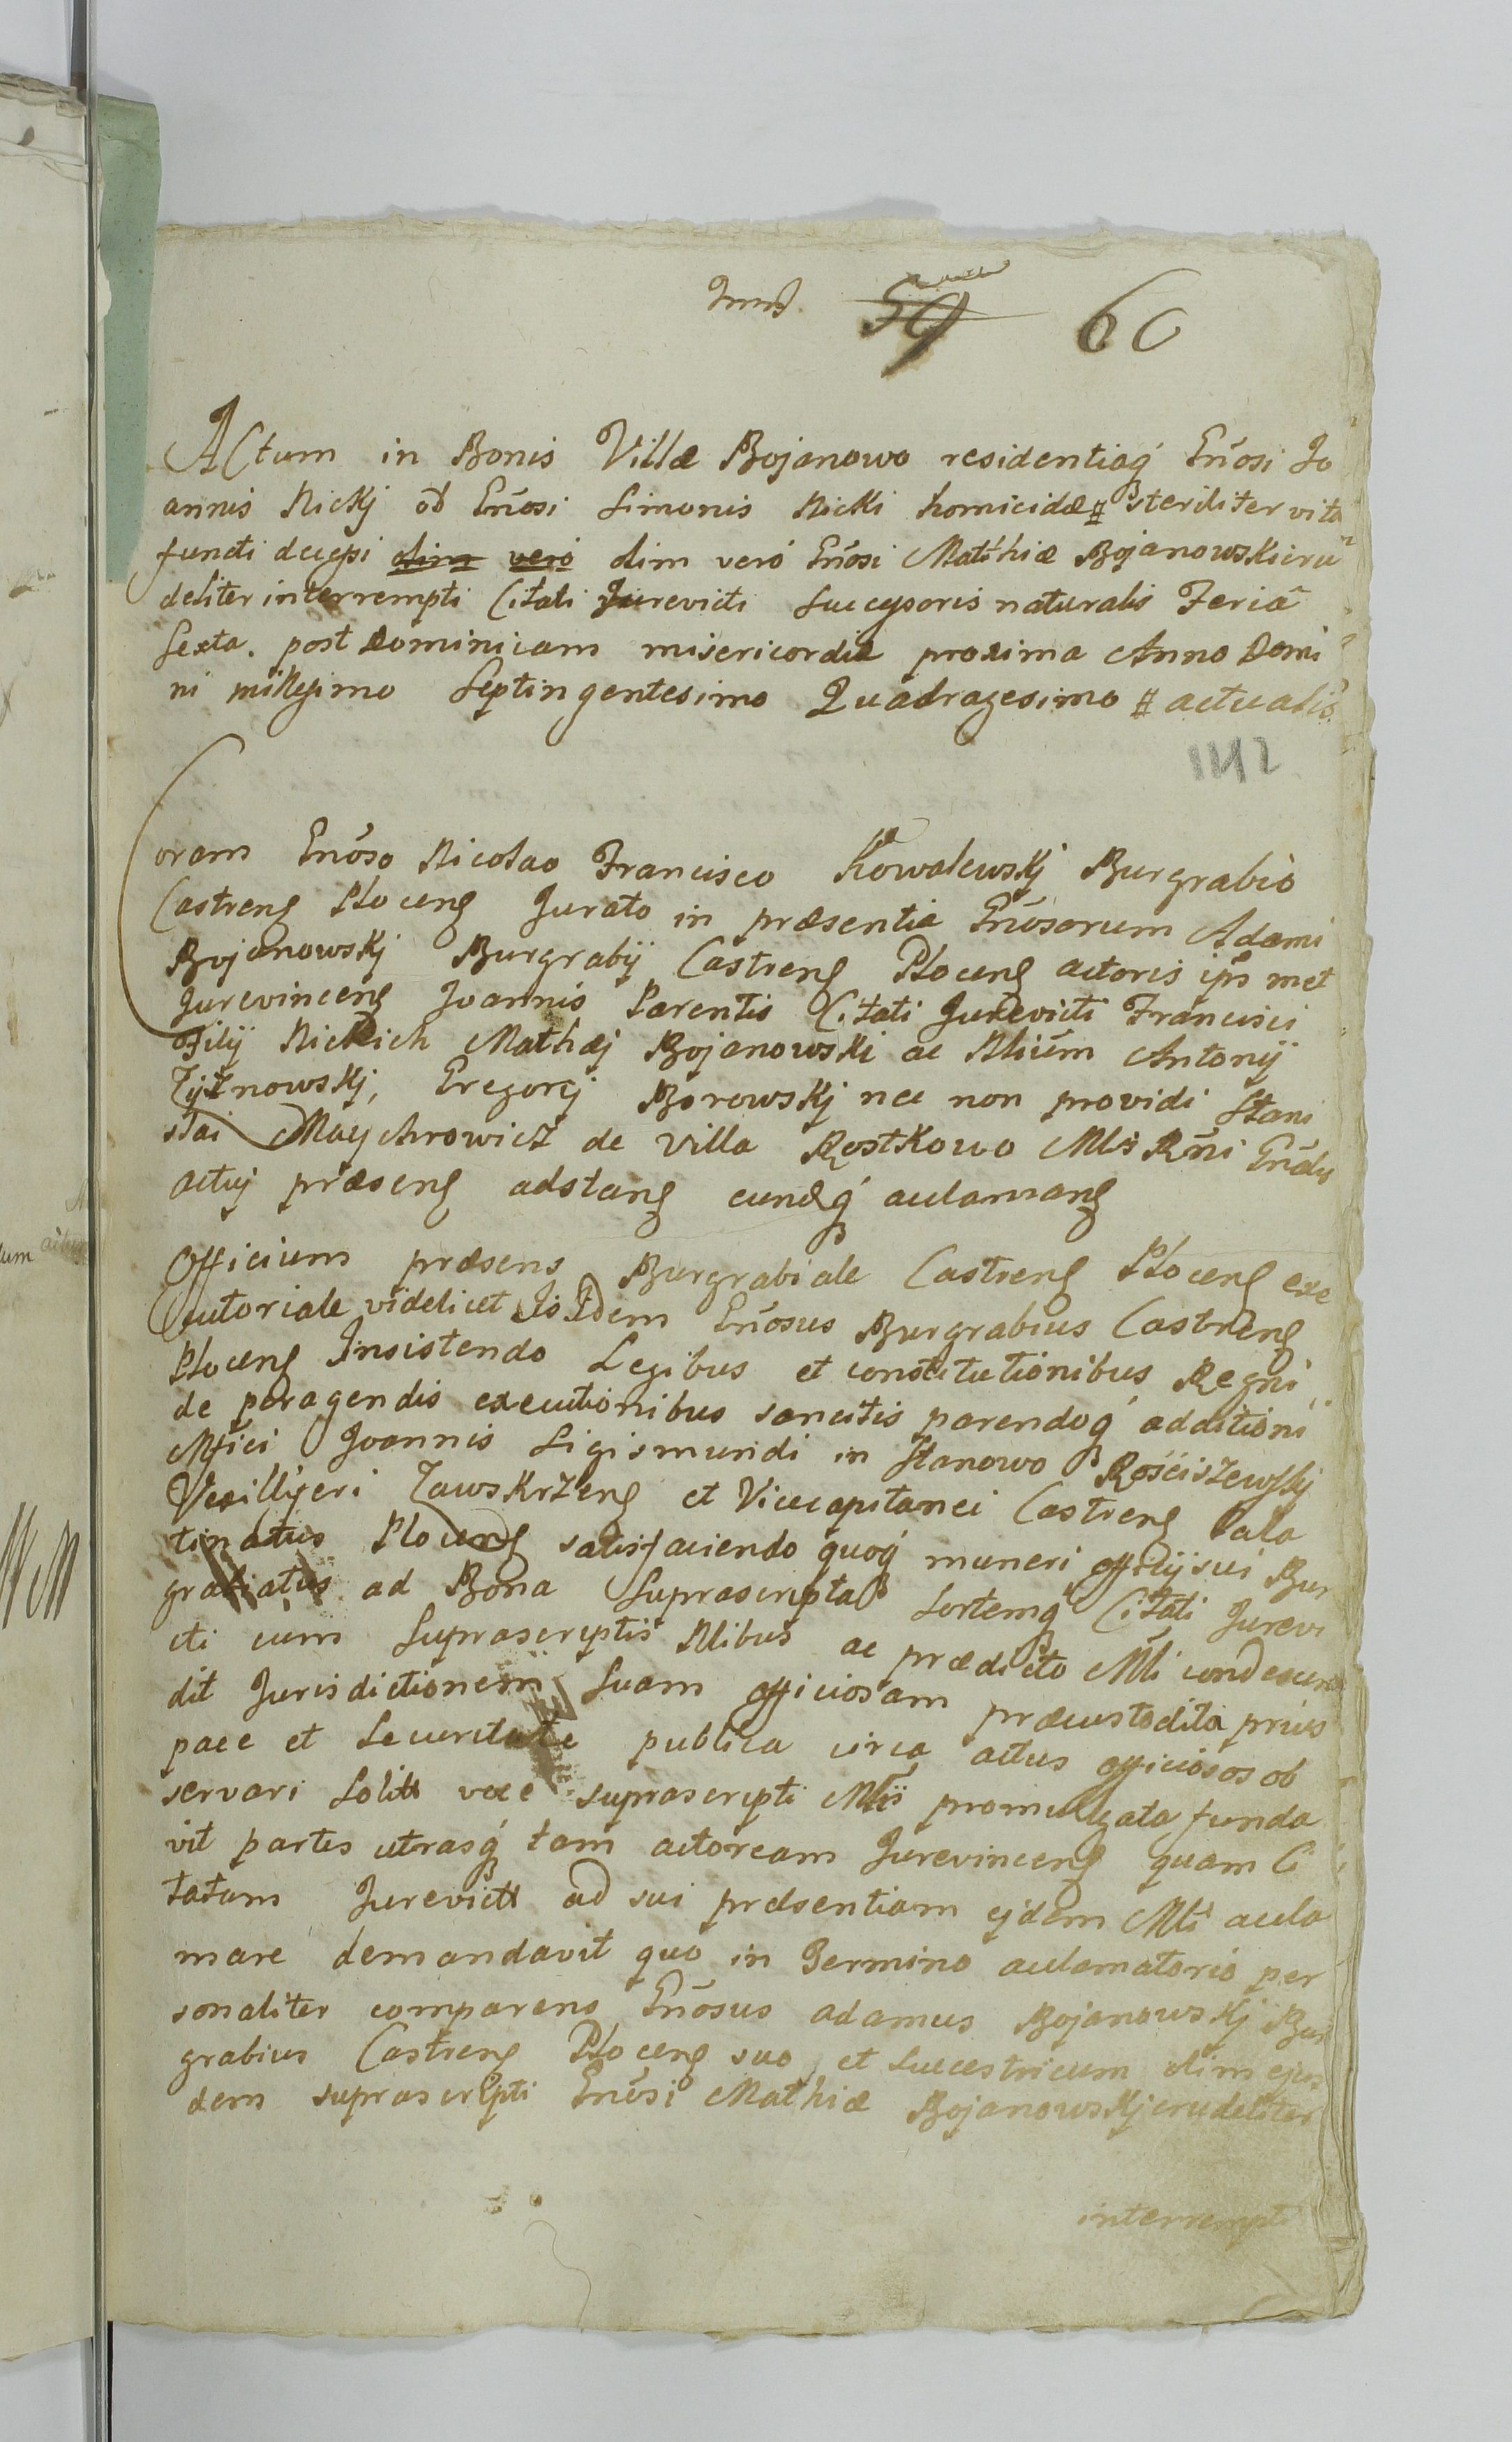 59 60
Actum in Bonis Villæ Bojanowo residentiaq́ Gnōsi Jo
annis Nickj ob Gnōsi Simonis Nicki homicidæ # steriliter vita
functi decessi olim vero olim veró Gnōsi Mathiæ Bojanowski cru
deliter interrempti Citati Jurevicti Successoris naturalis Feriâ
Sexta. post Dominicam misericordiæ proxima Anno Domi
ni millesimo Septingentesimo Quadragesimo # actualis
1742
Coram Gnōso Nicolao Francisco Kowalewskj Burgrabio
Castreng Ploceng Jurato in præsentia Gnōsorum Adami
Bojanowskj Burgrabij Castreng Ploceng actoris ips met
Jurevinceng Joannis Parentis Citati Jurevicti Francisci
Filij Nickich Mathæj Bojanowski ac Nlium Antonij
Żyznowskj, Gregorij Borowskj nec non providi Stani
slai Maychrowicz de Villa Rostkowo Mlis Rñi Gnālis
actuj præseng adstang eundq́ aclamang
Officium præsens Burgrabiale Castreng Ploceng exe
cutoriale videlicet Is Idem Gnōsus Burgrabius Castreng
Ploceng Insistendo Legibus et constitutionibus Regni
de peragendis executionibus sancitis parendoq́ additioni
Mfici Joannis Sigismundi in Stanowo Rościszewskj
Vexillijeri Zawskrzeng et Vicecapitanei Castreng Pala
tinatus Ploceng satisfaciendo quoq́ muneri officij sui Bur
grabiatus ad Bona Suprascripta Sortemq́ Citati Jurevi
cti cum Suprascriptis Nlibus ac prædicto Mli condescen
dit Jurisdictionem Suam officiosam præcustodita prius
pace et Securitate publica circa actus officiosos ob
servari Solita voce suprascripti Mlis promulgata funda
vit partes utrasq́ tam actoream Jurevinceng quam Ci
tatam Jurevicta ad sui præsentiam ejdem Mli acla
mare demandavit quo in Termino aclamatorio per
sonaliter comparens Gnōsus adamus Bojanowskj Bur
grabius Castreng Ploceng suo et Succestricum olim ejus
dem suprascripti Gnōsi Mathiæ Bojanowskj crudeliter
interrempti